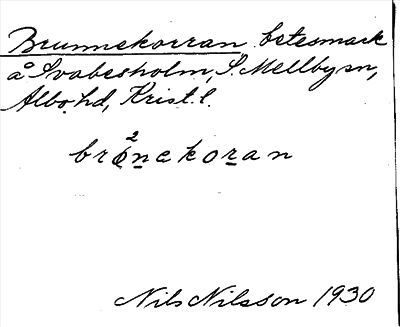 Brunnekorran, betesmark
å Svabesholm, S. Mellby sn,
Albo hd, Krist. l.
brönekoran
Nils Nilsson 1930